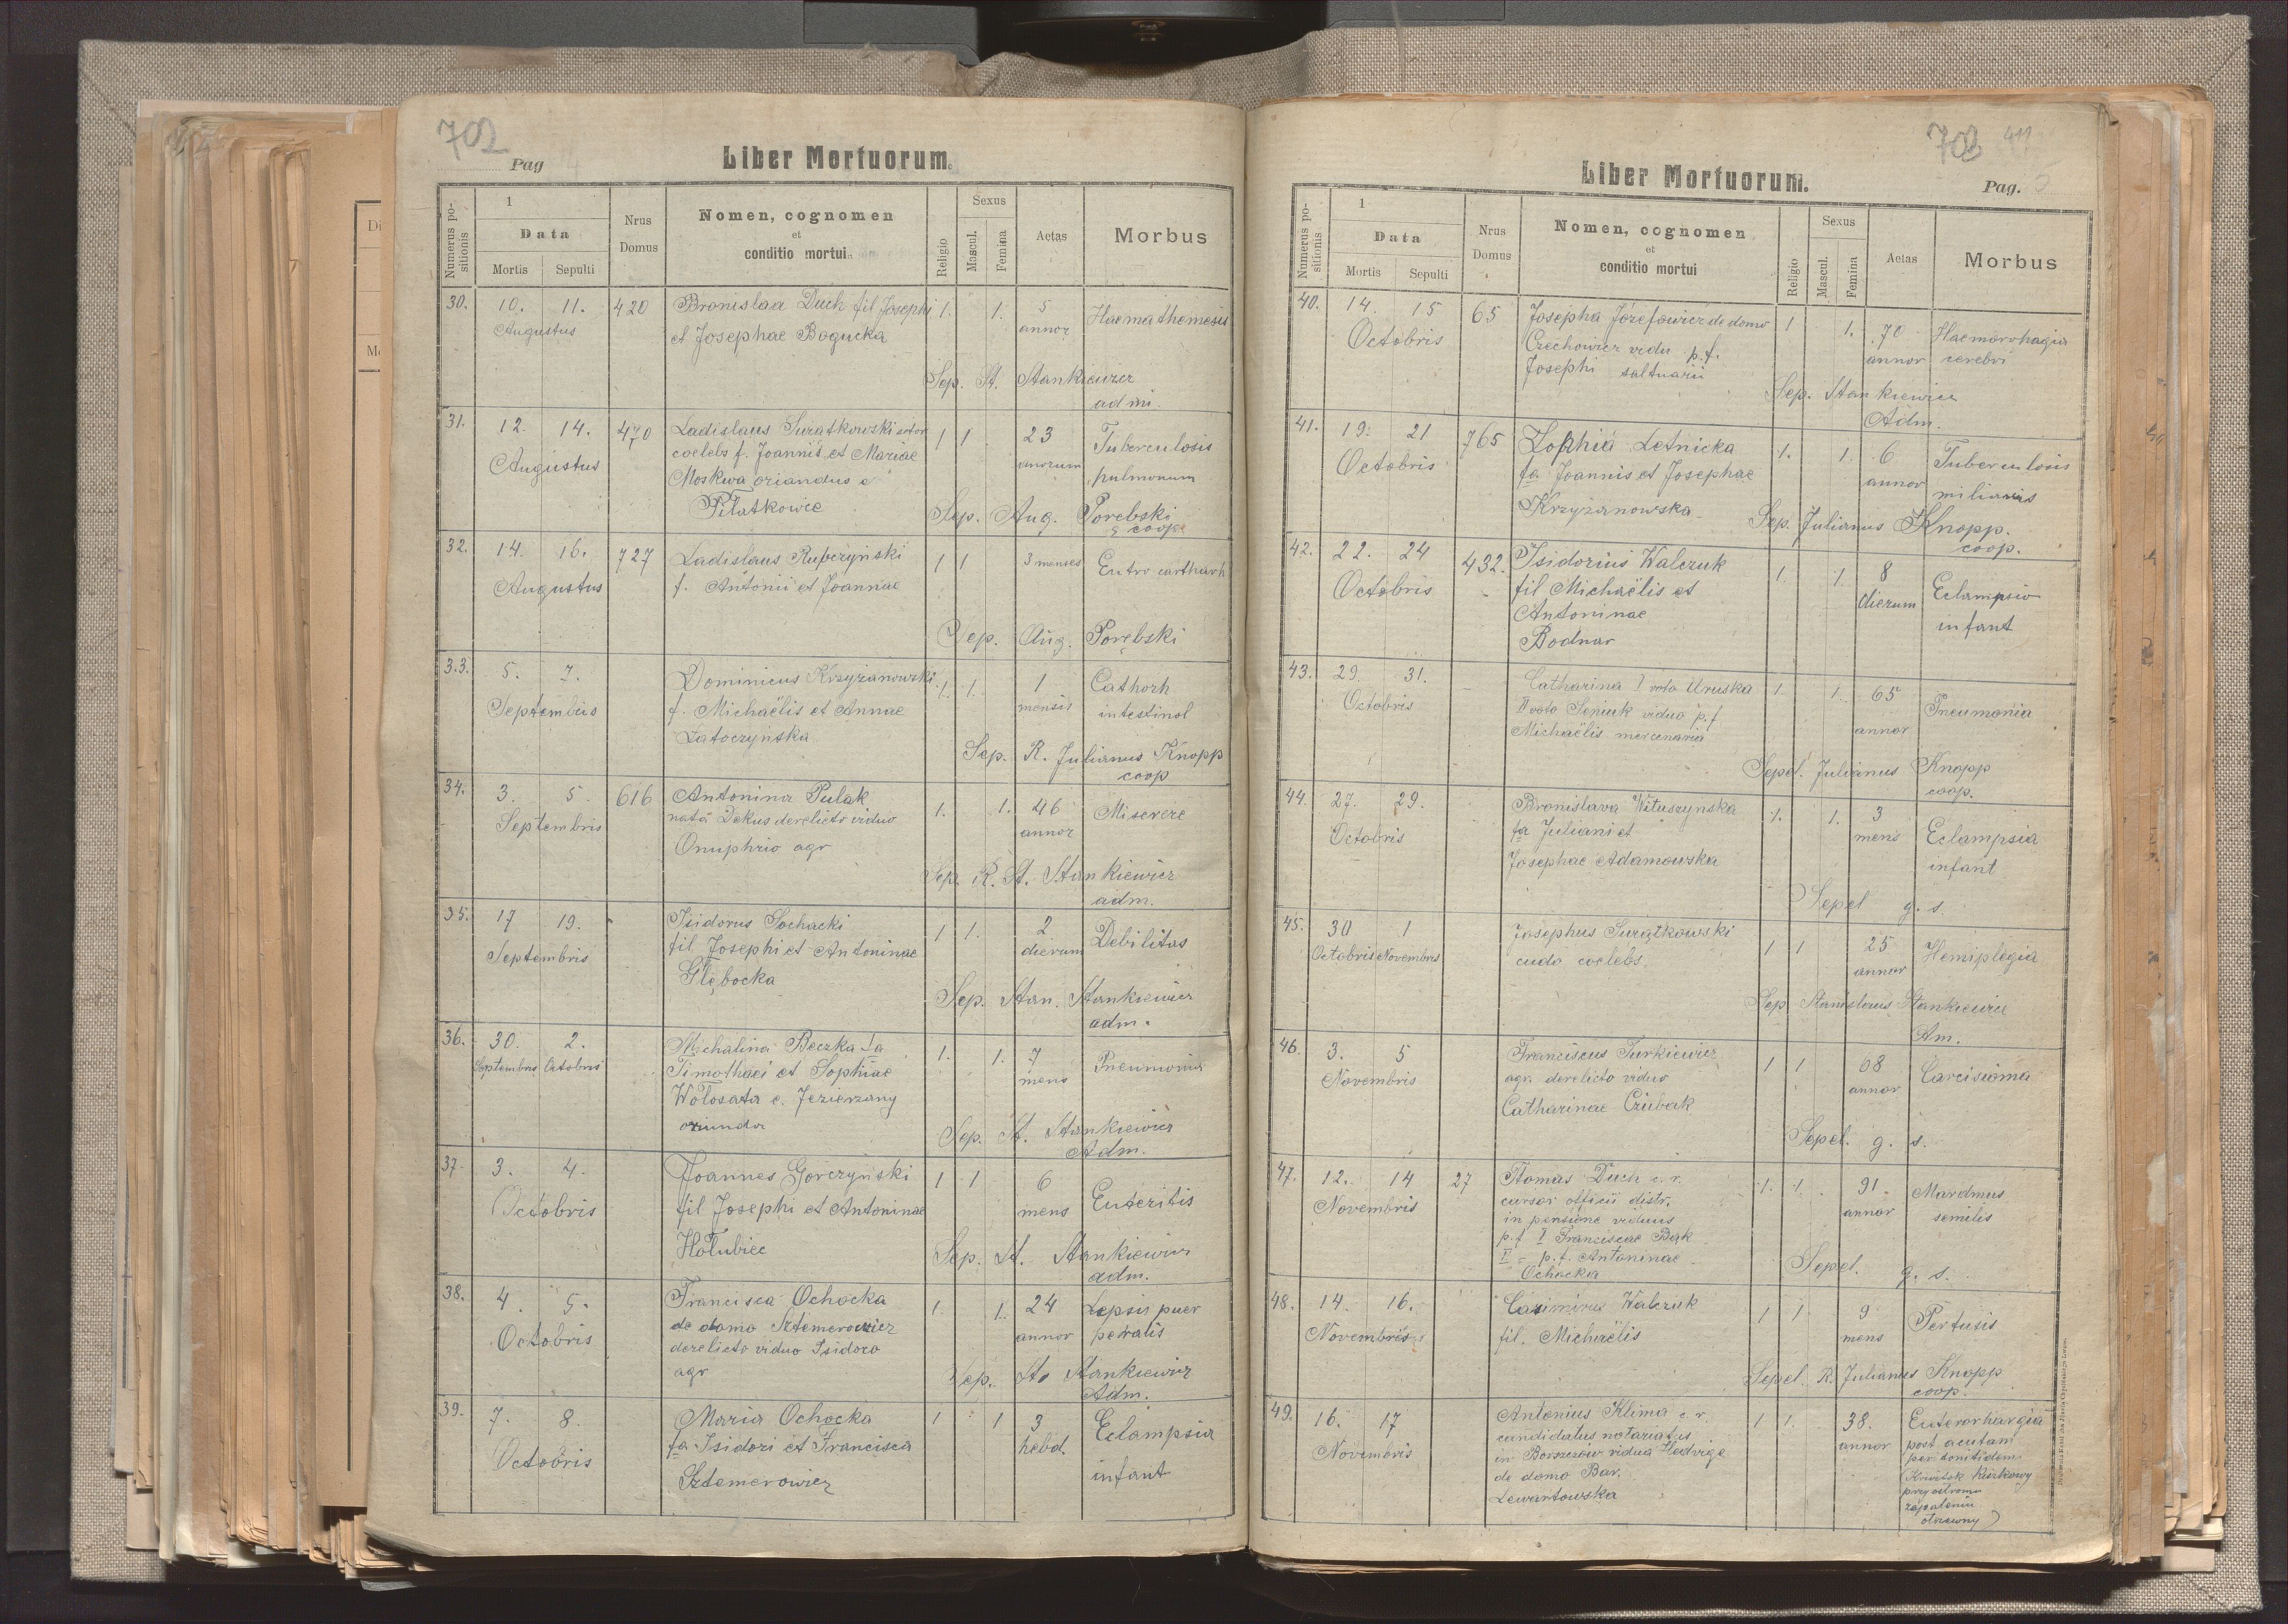 702
Pag
Liber Mortuorum.
Numerus po-
sitionis
1
Data
Mortis Sepulti
Nrus
Domus
Nomen, cognomen
et
conditio mortui
Religio
Sexus
Mascul.
Femina
Aetas
Morbus
30. 10. 11. 420 Bronislaa Duch fil Josephi 1. 1. 5 Haemathemesis
Augustus et Josephae Bogucka annor
Sep. St. Stankiewicz
admi.
31. 12. 14. 470 Ladislaus Suratkowski sutor 1 1 23 Tuberculosis
Augustus coelebs f. Joannis et Mariae anorum pulmonum
Moskwa oriandus e
Pilatkowce Sep. Aug. Porebski
coope
32. 14. 16. 727 Ladislaus Rubczynski 1 1 3 menses Entro cartharh
Augustus f. Antonii et Joannae
Sep. Aug. Porębski
33. 5. 7. Dominicus Krzyżanowski 1. 1. 1 Cathorh
Septembris f. Michaëlis et Annae mensis intestinol
Zatoczyńska
Sep. R. Julianus Knopp
coop
34. 3. 5. 616 Antonina Pulak 1. 1. 46 Miserere
Septembris nată Dekus derelicto viduo annor
Onuphrio agr
Sep. R. St. Stankiewicz
adm.
35. 17 19. Isidorus Sochacki 1 1. 2 Debilitas
Septembris fil Josephi et Antoninae dierum
Głębocka
Sep. Stan. Stankiewicz
adm.
36. 30. 2. Michalina Beczka fa 1. 1. 7 Pneumonia
Septembris Octobris Timothaei et Sophiae mens
Wołosata e. Jezierzany
oriunda Sep. St. Stankiewicz
Adm.
37. 3. 4. Joannes Gorczyński 1 1 6 Enteritis
Octobris fil Josephi et Antoninae mens
Hołubiec Sep. St. Stankiewicz
adm.
38. 4. 5. Francisca Ochocka 1. 1. 24 Lepsis puer
Octobris de domo Sztemerowicz annor peralis
derelicto viduo Isidoro
agr Sep. Sta Stankiewicz
Adm.
39. 7. 8. Maria Ochocka 1 1 3 Eclampsia
Octobris fa Isidori et Francisca hebd. infant
Sztemerowicz
411
Liber Mortuorum.
Pag.
Numerus po-
sitionis
1
Data
Mortis Sepulti
Nrus
Domus
Nomen, cognomen
et
conditio mortui
Religio
Sexus
Mascul.
Femina
Aetas
Morbus
40. 14. 15 65 Josepha Józefowicz de domo 1 1. 70 Haemorrhagia
Octobris Czechowicz vidu p.f. annor cerebri
Josephi saltuarii
Sep. Stankiewicz
Adm.
41. 19. 21 765 Zophia Letnicka 1. 1. 6 Tuberculosis
Octobris fa Joannis et Josephae annor miliaris
Krzyżanowska
Sep. Julianus Knopp.
coop.
42. 22. 24 432. Isidorius Walczuk 1. 1. 8 Eclampsio
Octobris fil Michaëlis et dierum infant
Antoninae
Bodnar
43. 29. 31. Catharina I voto Uruska 1. 1. 65 Pneumonia
Octobris II voto Seniuk viduo p.f annor
Michaëlis mercenaria
Sepel. Julianus Knopp
coop.
44. 27. 29. Bronislava Wituszynska 1. 1. 3 Eclampsia
Octobris fa Juliani et mens infant
Josephae Adamowska
Sepel g. s.
45. 30 1 Josephus Surątkowski 1 1 25 Hemiplegia
Octobris Novembris cudo coelebs. annor
Sep Stanislaus Stankiewicz
Am.
46. 3. 5 Franciscus Turkiewicz 1 1 68 Carcisioma
Novembris agr. derelicto viduo annor
Catharinae Cziubak
Sepel. g. s.
47. 12. 14 27 Thomas Duch c. r. 1. 1. 91. Mardmus
Novembris cursor officii distr. annor semilis
in pensione viduus
p.f I Franciscae Bąk
II = p.f. Antoninae
Ochocka Sepel. g. s.
48. 14. 16. Casimirus Walczuk 1 1 9 Pertusis
Novembris fil. Michaëlis mens
Sepel R. Julianus Knopp
coop.
49. 16. 17 Antonius Klima c. r. 1 1. 38. Enterorhargia
Novembris candidatus notariatus annor post acutam
in Borszczów vidua Hedvige peritonitidem
de domo Bar. Kiszkowy
Lewartowska przy ostrem
zapaleniu
otrzewny)